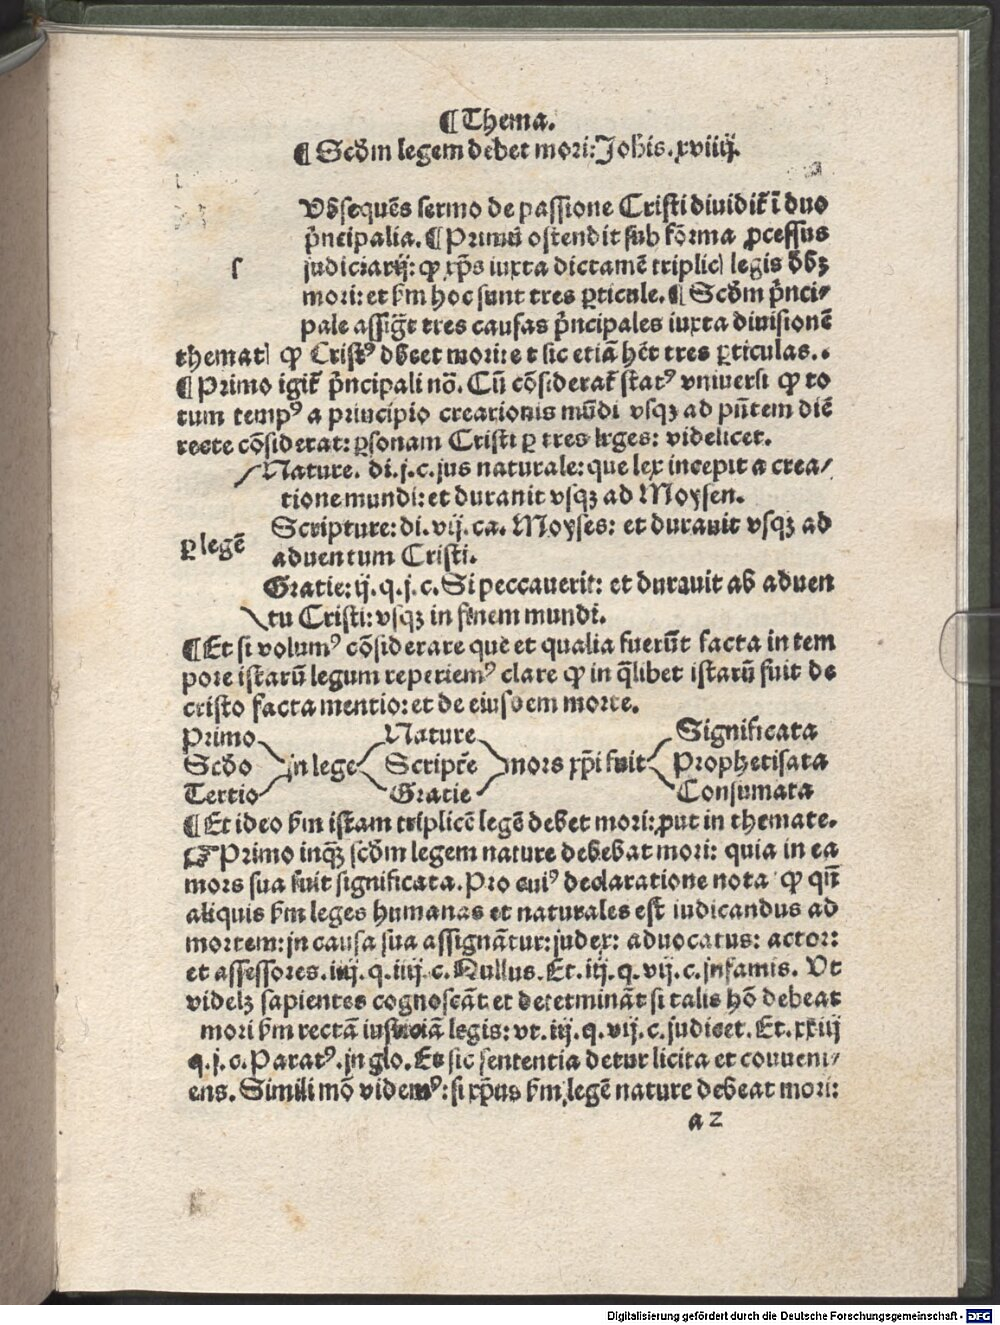 ¶Thema.
¶Scd̄m legem debet mori:Johīs.xviiij.
Vbsequēs sermo de passione Cristi diuidit᷑ ī duo
p̄ncipalia.¶Primū ostendit sub fōrma ꝓcessus
ſ judiciarij: ꝙ xp̄s iuxta dictamē triplicꝭ legis dꝫbꝫ
mori: et ẜm hoc sunt tres ꝑticule.¶Scd̄m p̄nci⸗
pale assig̅t tres causas p̄ncipales iuxta diuisionē
thematꝭ ꝙ Cristꝰ dbeet mori: et sic etiā hēt tres ꝑticulas..
¶Primo igit᷑ p̄ncipali nō. Cū cōsiderat᷑ statꝰ vniuersi ꝙ to
tum tempꝰ a principio creationis mūdi vsqꝫ ad pn̄tem diē
recte cōsiderat: ꝑsonam Cristi ꝑ tres leges: videlicet.
Nature. di.j.c.jus naturale: que lex incepit a crea/
tione mundi: et durauit vsqꝫ ad Moysen.
Scripture: di.vij.ca. Moyses: et durauit vsqꝫ ad
ꝑ legē aduentum Cristi.
Gratie: ij.q.j.c. Si peccauerit: et durauit ab aduen
tu Cristi: vsqꝫ in finem mundi.
¶Et si volumꝰ cōsiderare que et qualia fuerūt facta in tem
pore istarū legum reperiemꝰ clare ꝙ in q̄libet istarū fuit de
cristo facta mentio: et de eiusdem morte.
Primo Nature Significata
Scd̄o in lege Scripte̅ mors xp̄i fuit Prophetisata
Tertio Gratie Consumata
¶Et ideo ẜm istam triplicē legē debet mori: ꝓut in themate.
☞Primo inqꝫ scd̄m legem nature debebat mori: quia in ea
mors sua fuit significata. Pro cuiꝰ declaratione nota ꝙ qn̄
aliquis ẜm leges humanas et naturales est iudicandus ad
mortem: jn causa sua assignātur: judex: aduocatus: actor:
et assessores.iiij.q.iiij.c. Nullus. Et.iij.q.vij.c. jnfamis. Vt
videlꝫ sapientes cognoscāt et detetmināt si talis hō debeat
mori ẜm rectā iusticiā legis: vt.iij.q.vij.c. judicet. Et.xxiij
q.j.c. Paratꝰ. jn glo. Et sic sententia detur licita et couueni/
ens. Simili mō videmꝰ: si xp̄us ẜm legē nature debeat mori:
a2